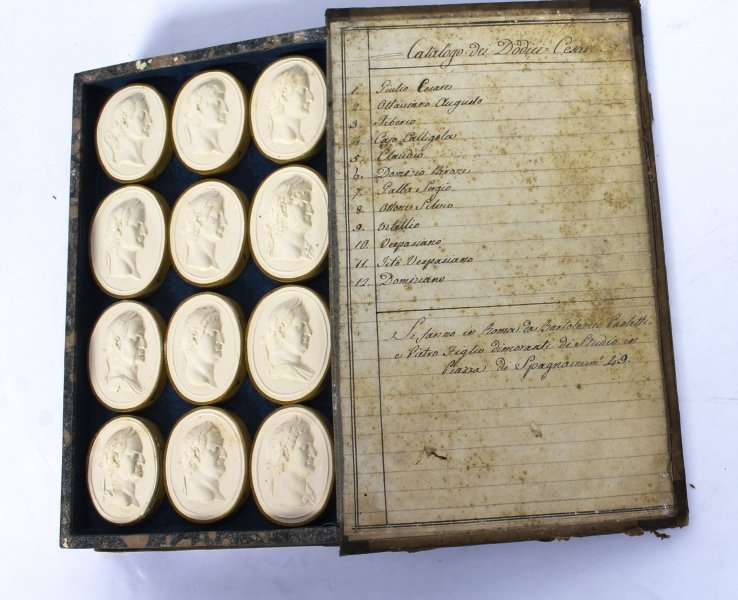 Catalogo dei Dodici Cesari
1. Giulio Cesare
2. Ottaviano Augusto
3. Tiberio
4. Cajo Calligola
5. Claudio
6. Domizio Nerone
7. Galba Sergio
8. Ottone Silvio
9. Vitellio
10. Vespasiano
11. Tito Vespasiano
12. Domiziano
Si fanno in Roma da Bartolomeo Paoletti
e Pietro Figlio dimoranti di Studio in
Piazza di Spagna num. 49.